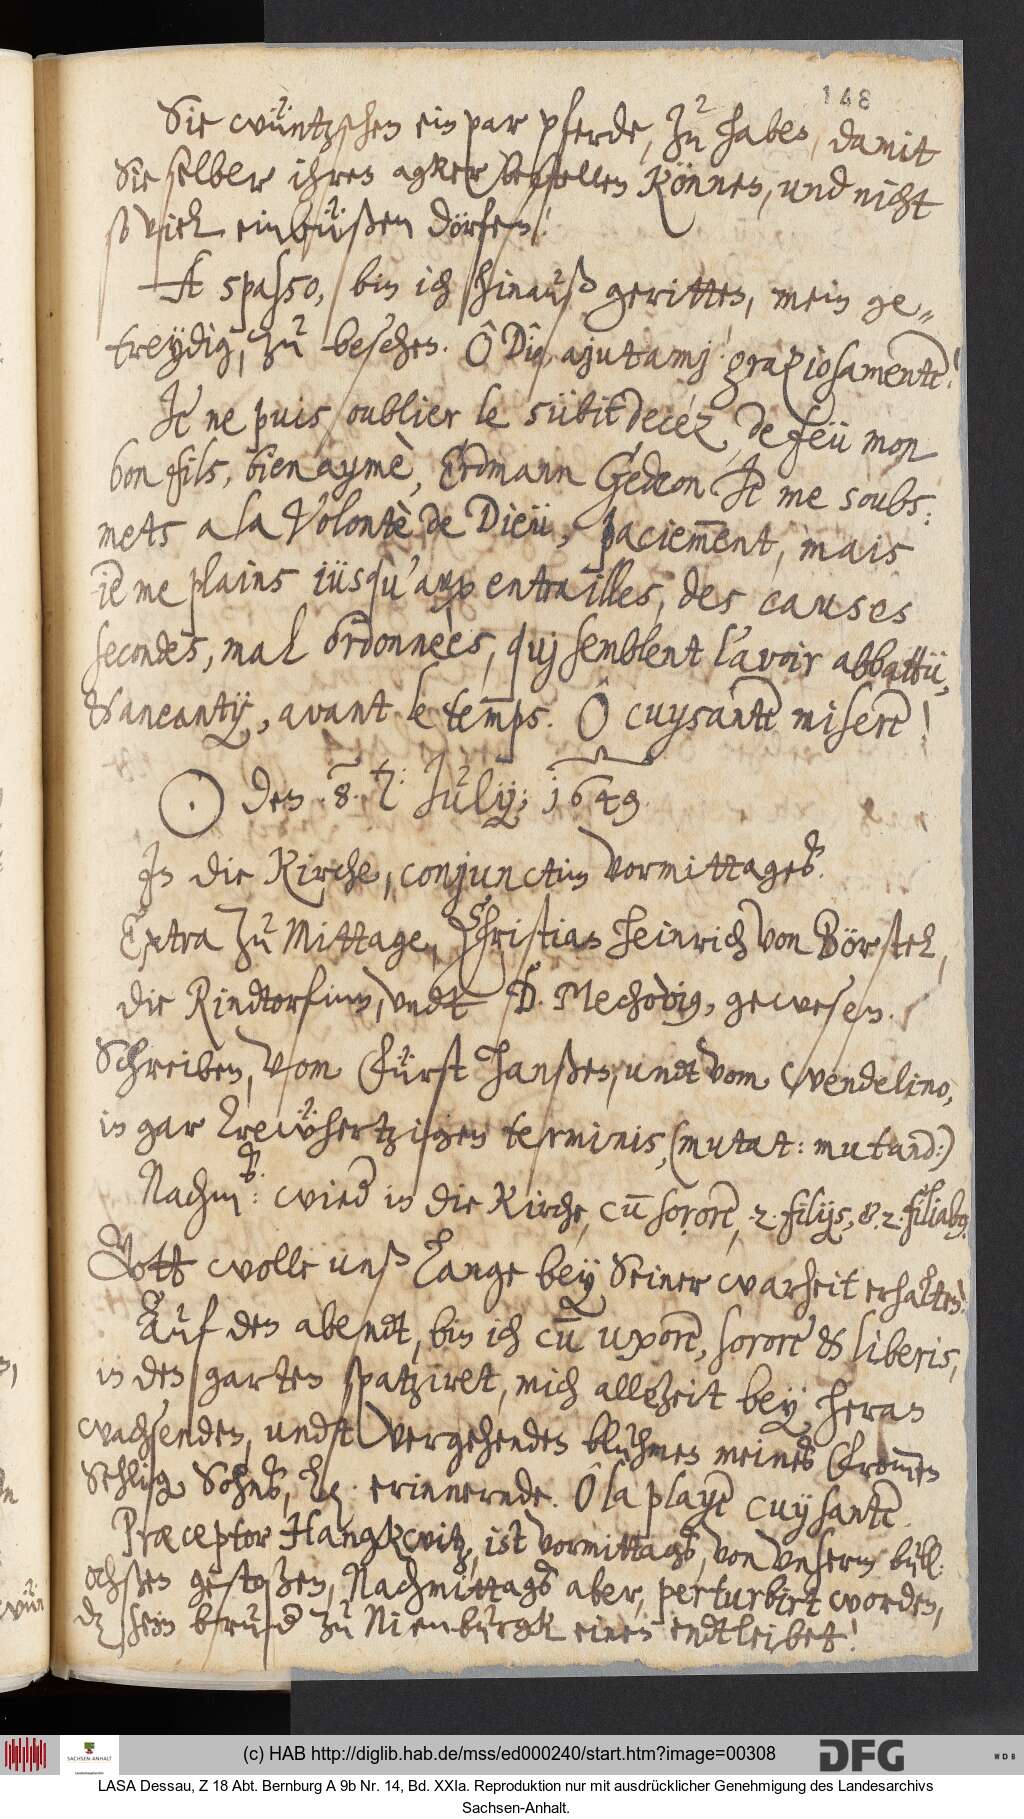 148
Sie wüntzschen ein par pferde, zu haben, damit
Sie selber ihren agker bestellen können, und nicht
so viel einbüßen dörfen!
A spasso, bin ich hinauß geritten, mein ge„
treydig, zu besehen. Ô Dio, ajutamj graziosamente!
Je ne puis oublier le sübit decéz, de feü mon
bon fils, bien aymè, Erdmann Gedeon Je me soubs:
mets a la Volontè de Dieü, paciem̅ent, mais
je me plains iüsqu'aux entrailles, des causes
secondes, mal ordonnèes, quj semblent l'avoir abbattü,
& aneantÿ, avant le temps. Ô cuysante misere!
☉ den .8. t: Julÿ; 1649.
In die Kirche, conjunctim vormittages.
Extra zu Mittage, Christian Heinrich von Börstel,
die Rindtorfinn, undt D. Mechovig, gewesen.
Schreiben, vom Fürst Hanßen, undt vom Wendelino,
in gar trewhertzigen terminis, (mutat: mutand:)
Nachm: wied in die Kirche, cu̅ sorore, .2. filijs, &. 2. filiabg.
Gott wolle unß lange beÿ Seiner warheit erhalten!
Auf den abendt, bin ich cu̅ uxore, sorore & liberis,
in den garten spatziret, mich allezeit beÿ heran
wachsenden, undt vergehenden bluhmen meines from̅en
Sehlig Sohns, erinnernde. Ô la playe cuÿsante.
Præceptor Hangkwitz, ist vormittags, von unserm bull:
ochßen gestoßen, Nachmittags aber, perturbirt worden,
dz sein brud zu Nienburgk einen endtleibet!
(c) HAB http://diglib.hab.de/mss/ed000240/start.htm?image=00308
SACHSEN-ANHALT
DFG
WDB
LASA Dessau, Z 18 Abt. Bernburg A 9b Nr. 14, Bd. XXIa. Reproduktion nur mit ausdrücklicher Genehmigung des Landesarchivs
Sachsen-Anhalt.